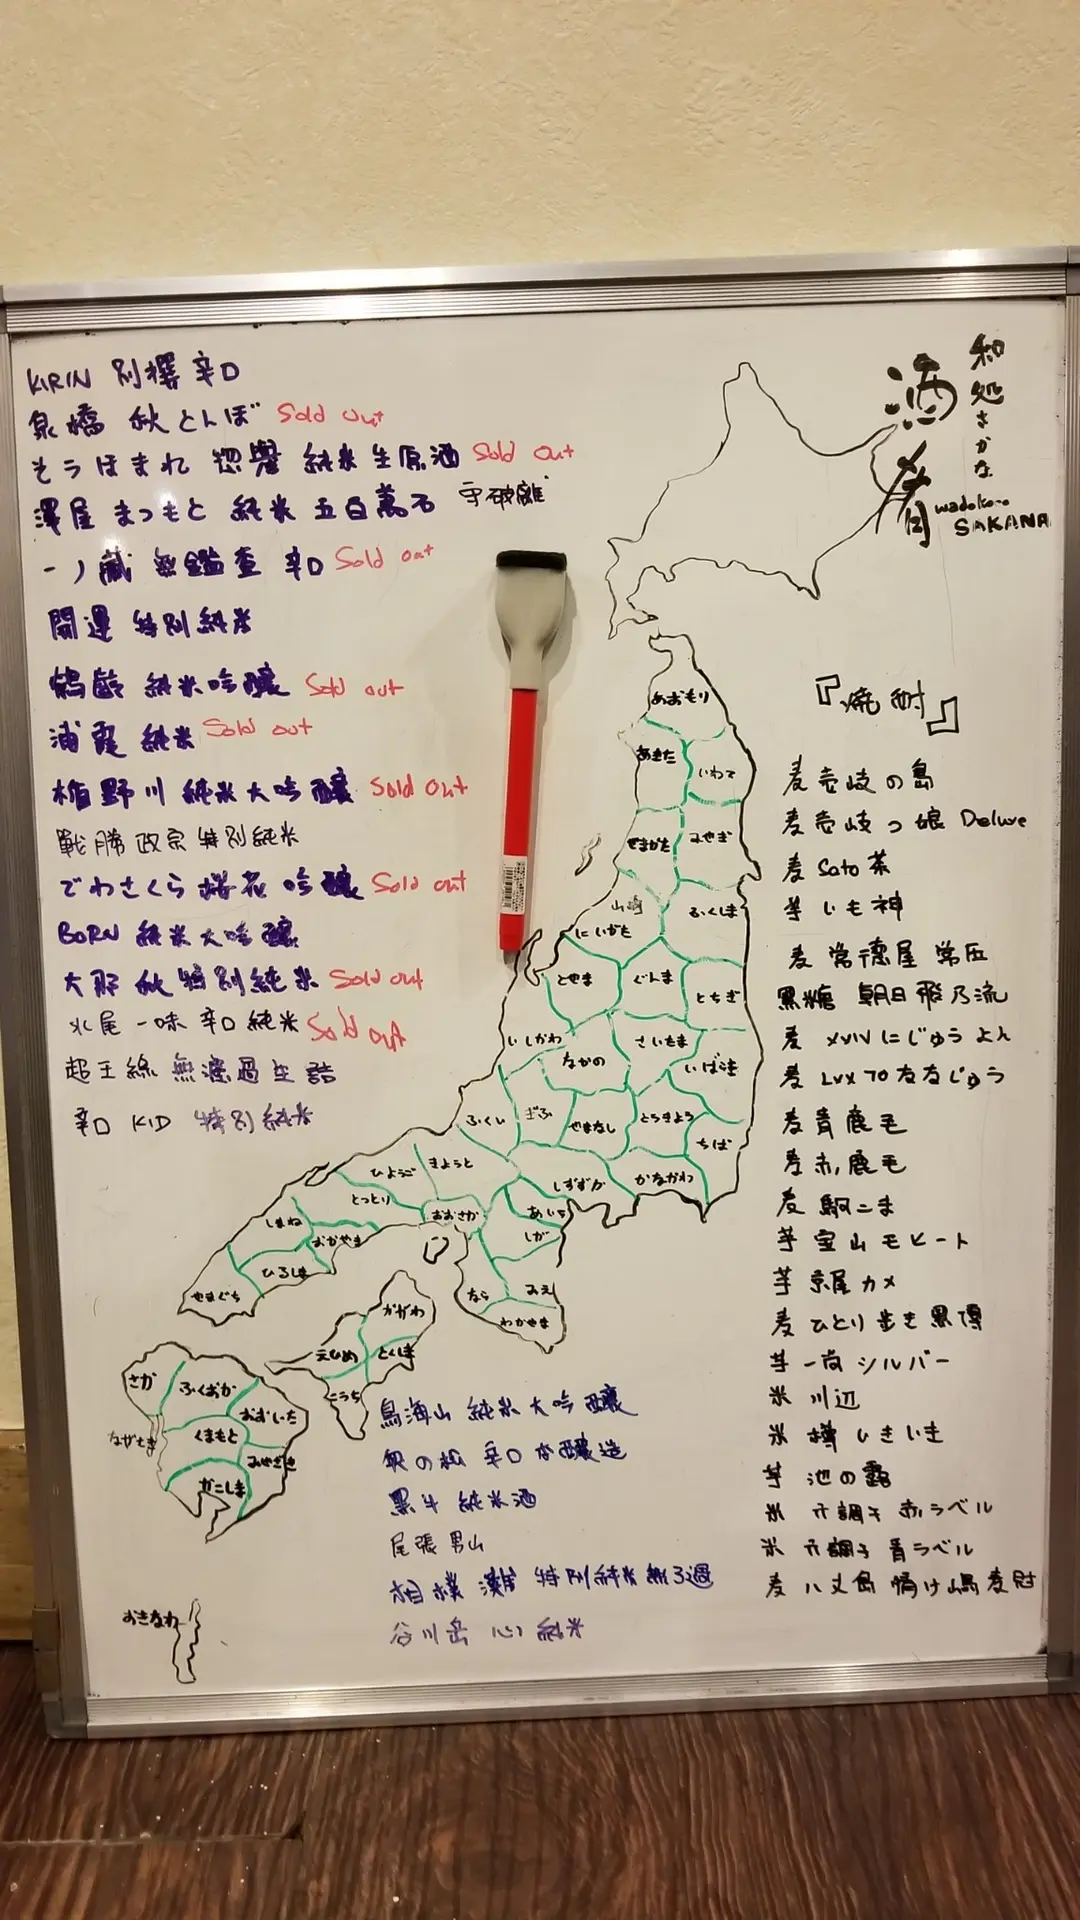 KIRIN 別撰 辛口
泉橋 秋とんぼ Sold out
そうほまれ 惣譽 純米生原酒 Sold out
澤屋 まつもと 純米 五百萬石 守破離
一ノ蔵 無鑑査 辛口 Sold out
開運 特別純米
鶴齢 純米吟醸 Sold out
浦霞 純米 Sold out
楯野川 純米大吟醸 Sold out
戦勝政宗 特別純米
でわさくら 桜花 吟醸 Sold out
BORN 純米大吟醸
大那 秋 特別純米 Sold out
水尾 一味 辛口 純米 Sold out
超王祿 無濾過生詰
辛口 KID 特別純米
鳥海山 純米大吟醸
奥の松 辛口 本醸造
黒牛 純米酒
尾張男山
相模灘 特別純米無ろ過
谷川岳 心 純米
和処さかな
酒肴
wadokoro
SAKANA
『焼酎』
麦 壱岐の島
麦 壱岐っ娘 Deluxe
麦 Sato 茶
芋 いも神
麦 常徳屋 常圧
黒糖 朝日 飛乃流
麦 XVIV にじゅうよん
麦 LXX 70 ななじゅう
麦 青鹿毛
麦 赤鹿毛
麦 駒こま
芋 宝山 モヒート
芋 京屋 カメ
麦 ひとり歩き 黒
芋 一尚 シルバー
米 川辺
米 樽 ひきいき
芋 池の露
米 六調子 赤ラベル
米 六調子 青ラベル
麦 八丈島 情け嶋 麦
あおもり
あきた
いわて
やまがた
みやぎ
山崎
ふくしま
にいがた
とやま
ぐんま
とちぎ
いしかわ
ながの
さいたま
いばらき
ふくい
ぎふ
やまなし
とうきょう
ちば
ひょうご
きょうと
しずずか
かながわ
とっとり
おおさか
あいち
しまね
おかやま
しが
ひろしま
やまぐち
なら
みえ
わかやま
かがわ
えひめ
とくしま
こうち
さか
ふくおか
おおいた
ながさき
くまもと
みやざき
かこしま
おきなわ